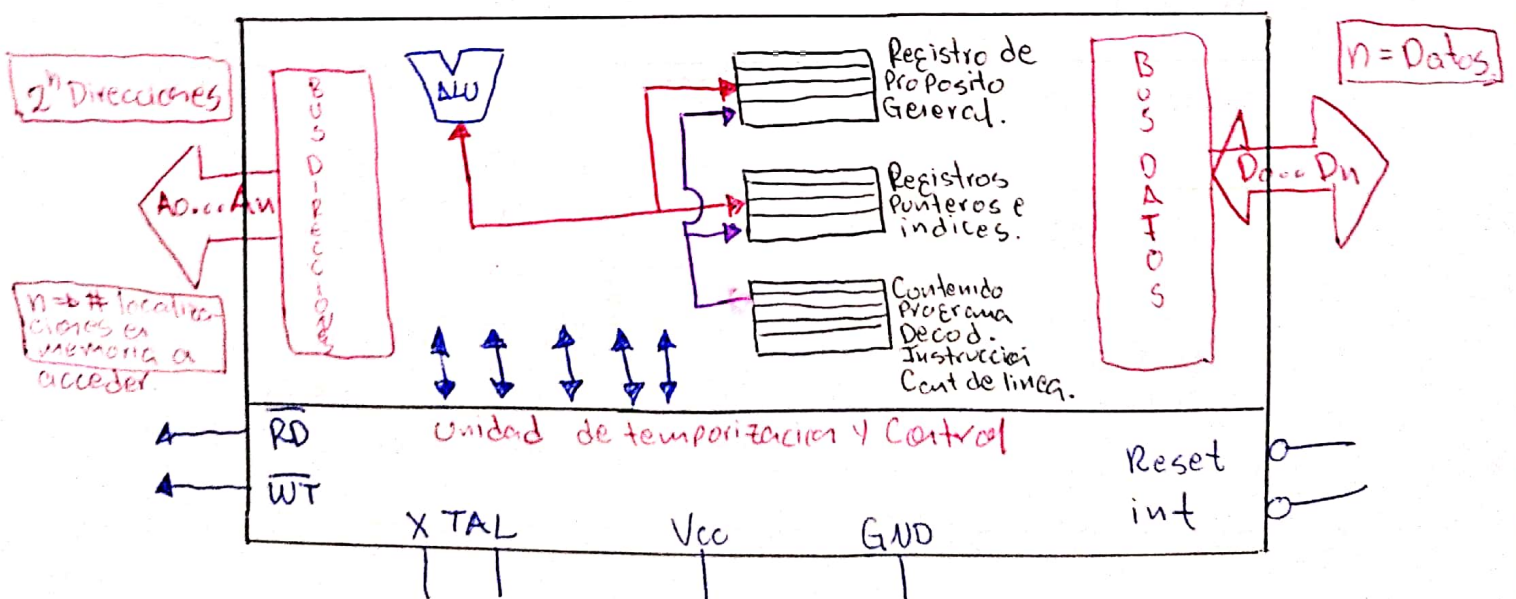 2ⁿ Direcciones
BUS DIRECCIONES
A0...An
n => # localiza-
ciones en
memoria a
acceder.
ALU
Registro de
Proposito
General.
Registros
Punteros e
indices.
Contenido
Programa
Decod.
Instrucción
Cont de linea.
BUS DATOS
n = Datos.
D0... Dn
Unidad de temporización y Control
R̅D̅
W̅T̅
XTAL
Vcc
GND
Reset
int